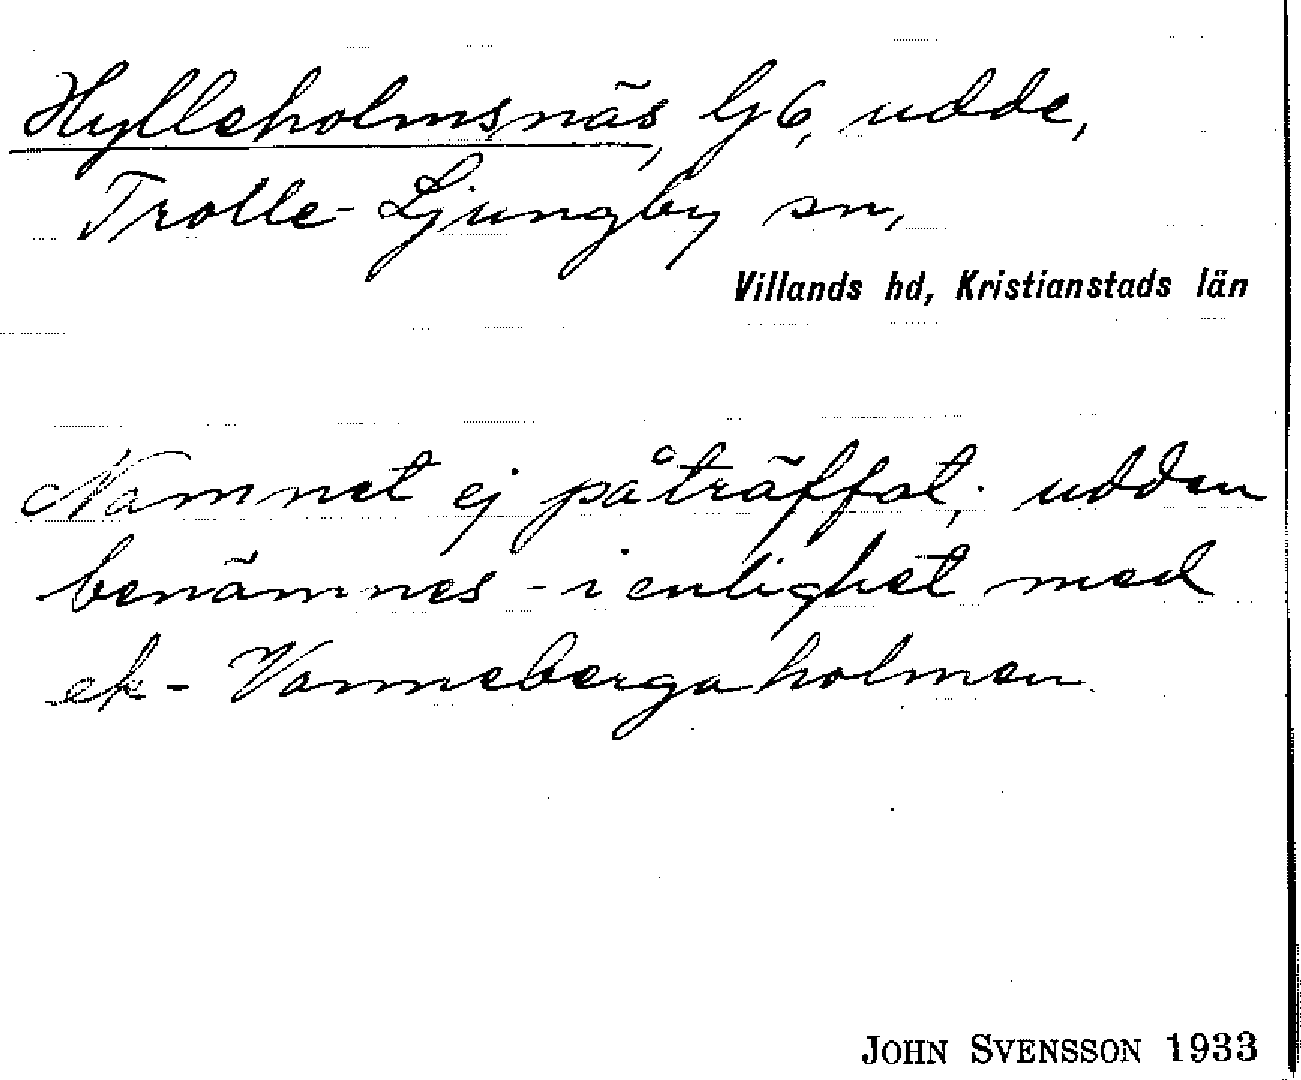 Hylleholmsnäs, lj 6, udde,
Trolle-Ljungby sn,
Villands hd, Kristianstads län
Namnet ej påträffat; udden
benämnes - i enlighet med
ek - Vanneberga holmen.
JOHN SVENSSON 1933